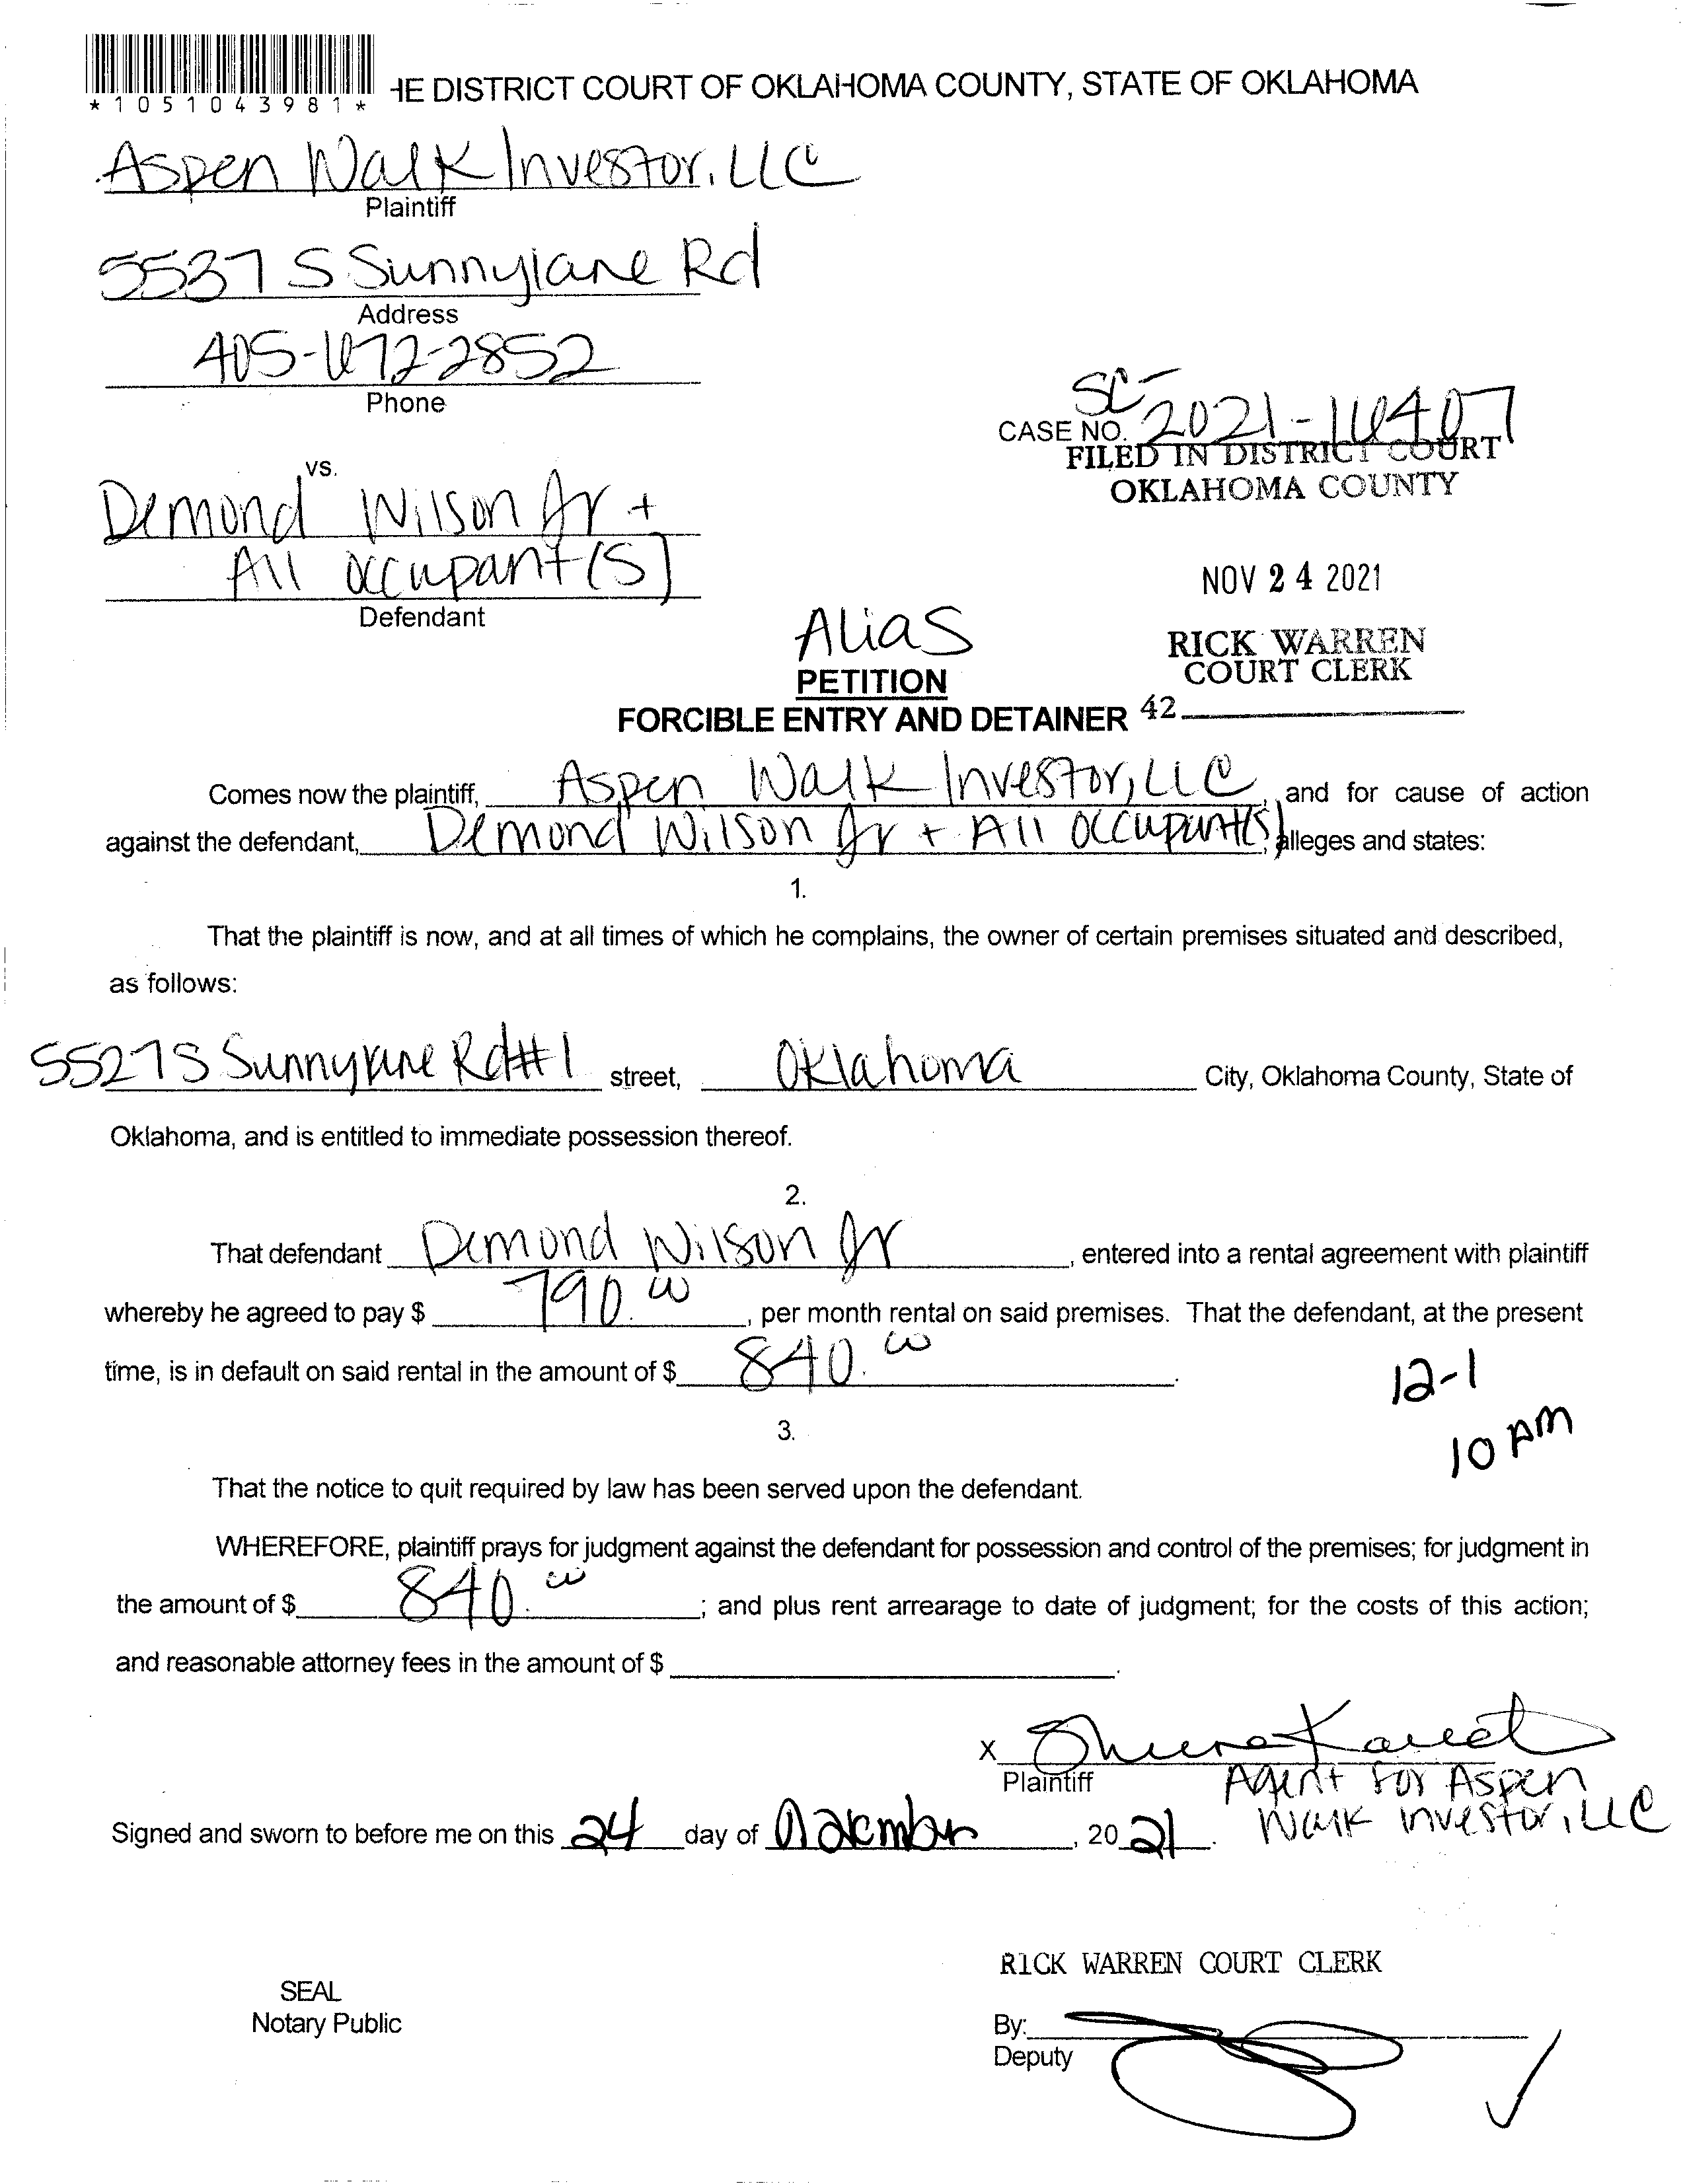 *1051043981*
HE DISTRICT COURT OF OKLAHOMA COUNTY, STATE OF OKLAHOMA
Aspen Walk Investor, LLC
Plaintiff
5537 S Sunnylane Rd
Address
405-672-2852
Phone
SC-
CASE NO. 2021-16407
FILED IN DISTRICT COURT
OKLAHOMA COUNTY
vs.
Demond Wilson Jr +
All occupant(s)
Defendant
NOV 24 2021
RICK WARREN
COURT CLERK
42
Alias
PETITION
FORCIBLE ENTRY AND DETAINER
Comes now the plaintiff, Aspen Walk Investor, LLC, and for cause of action
against the defendant, Demond Wilson Jr + All occupant(s), alleges and states:
1.
That the plaintiff is now, and at all times of which he complains, the owner of certain premises situated and described,
as follows:
5527 S Sunnylane Rd #1 street, Oklahoma City, Oklahoma County, State of
Oklahoma, and is entitled to immediate possession thereof.
2.
That defendant Demond Wilson Jr, entered into a rental agreement with plaintiff
whereby he agreed to pay $ 790.00, per month rental on said premises. That the defendant, at the present
time, is in default on said rental in the amount of $ 840.00.
12-1
10 AM
3.
That the notice to quit required by law has been served upon the defendant.
WHEREFORE, plaintiff prays for judgment against the defendant for possession and control of the premises; for judgment in
the amount of $ 840.00; and plus rent arrearage to date of judgment; for the costs of this action;
and reasonable attorney fees in the amount of $ .
X
Plaintiff
Agent for Aspen
Walk Investor, LLC
Signed and sworn to before me on this 24 day of November, 2021.
RICK WARREN COURT CLERK
SEAL
Notary Public
By:
Deputy